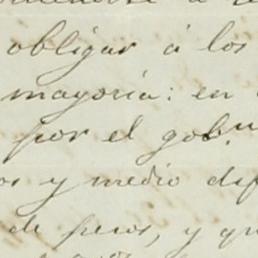 obligar á los
mayoria: en
por el gob.no
os y medio dif
de pesos, y qu